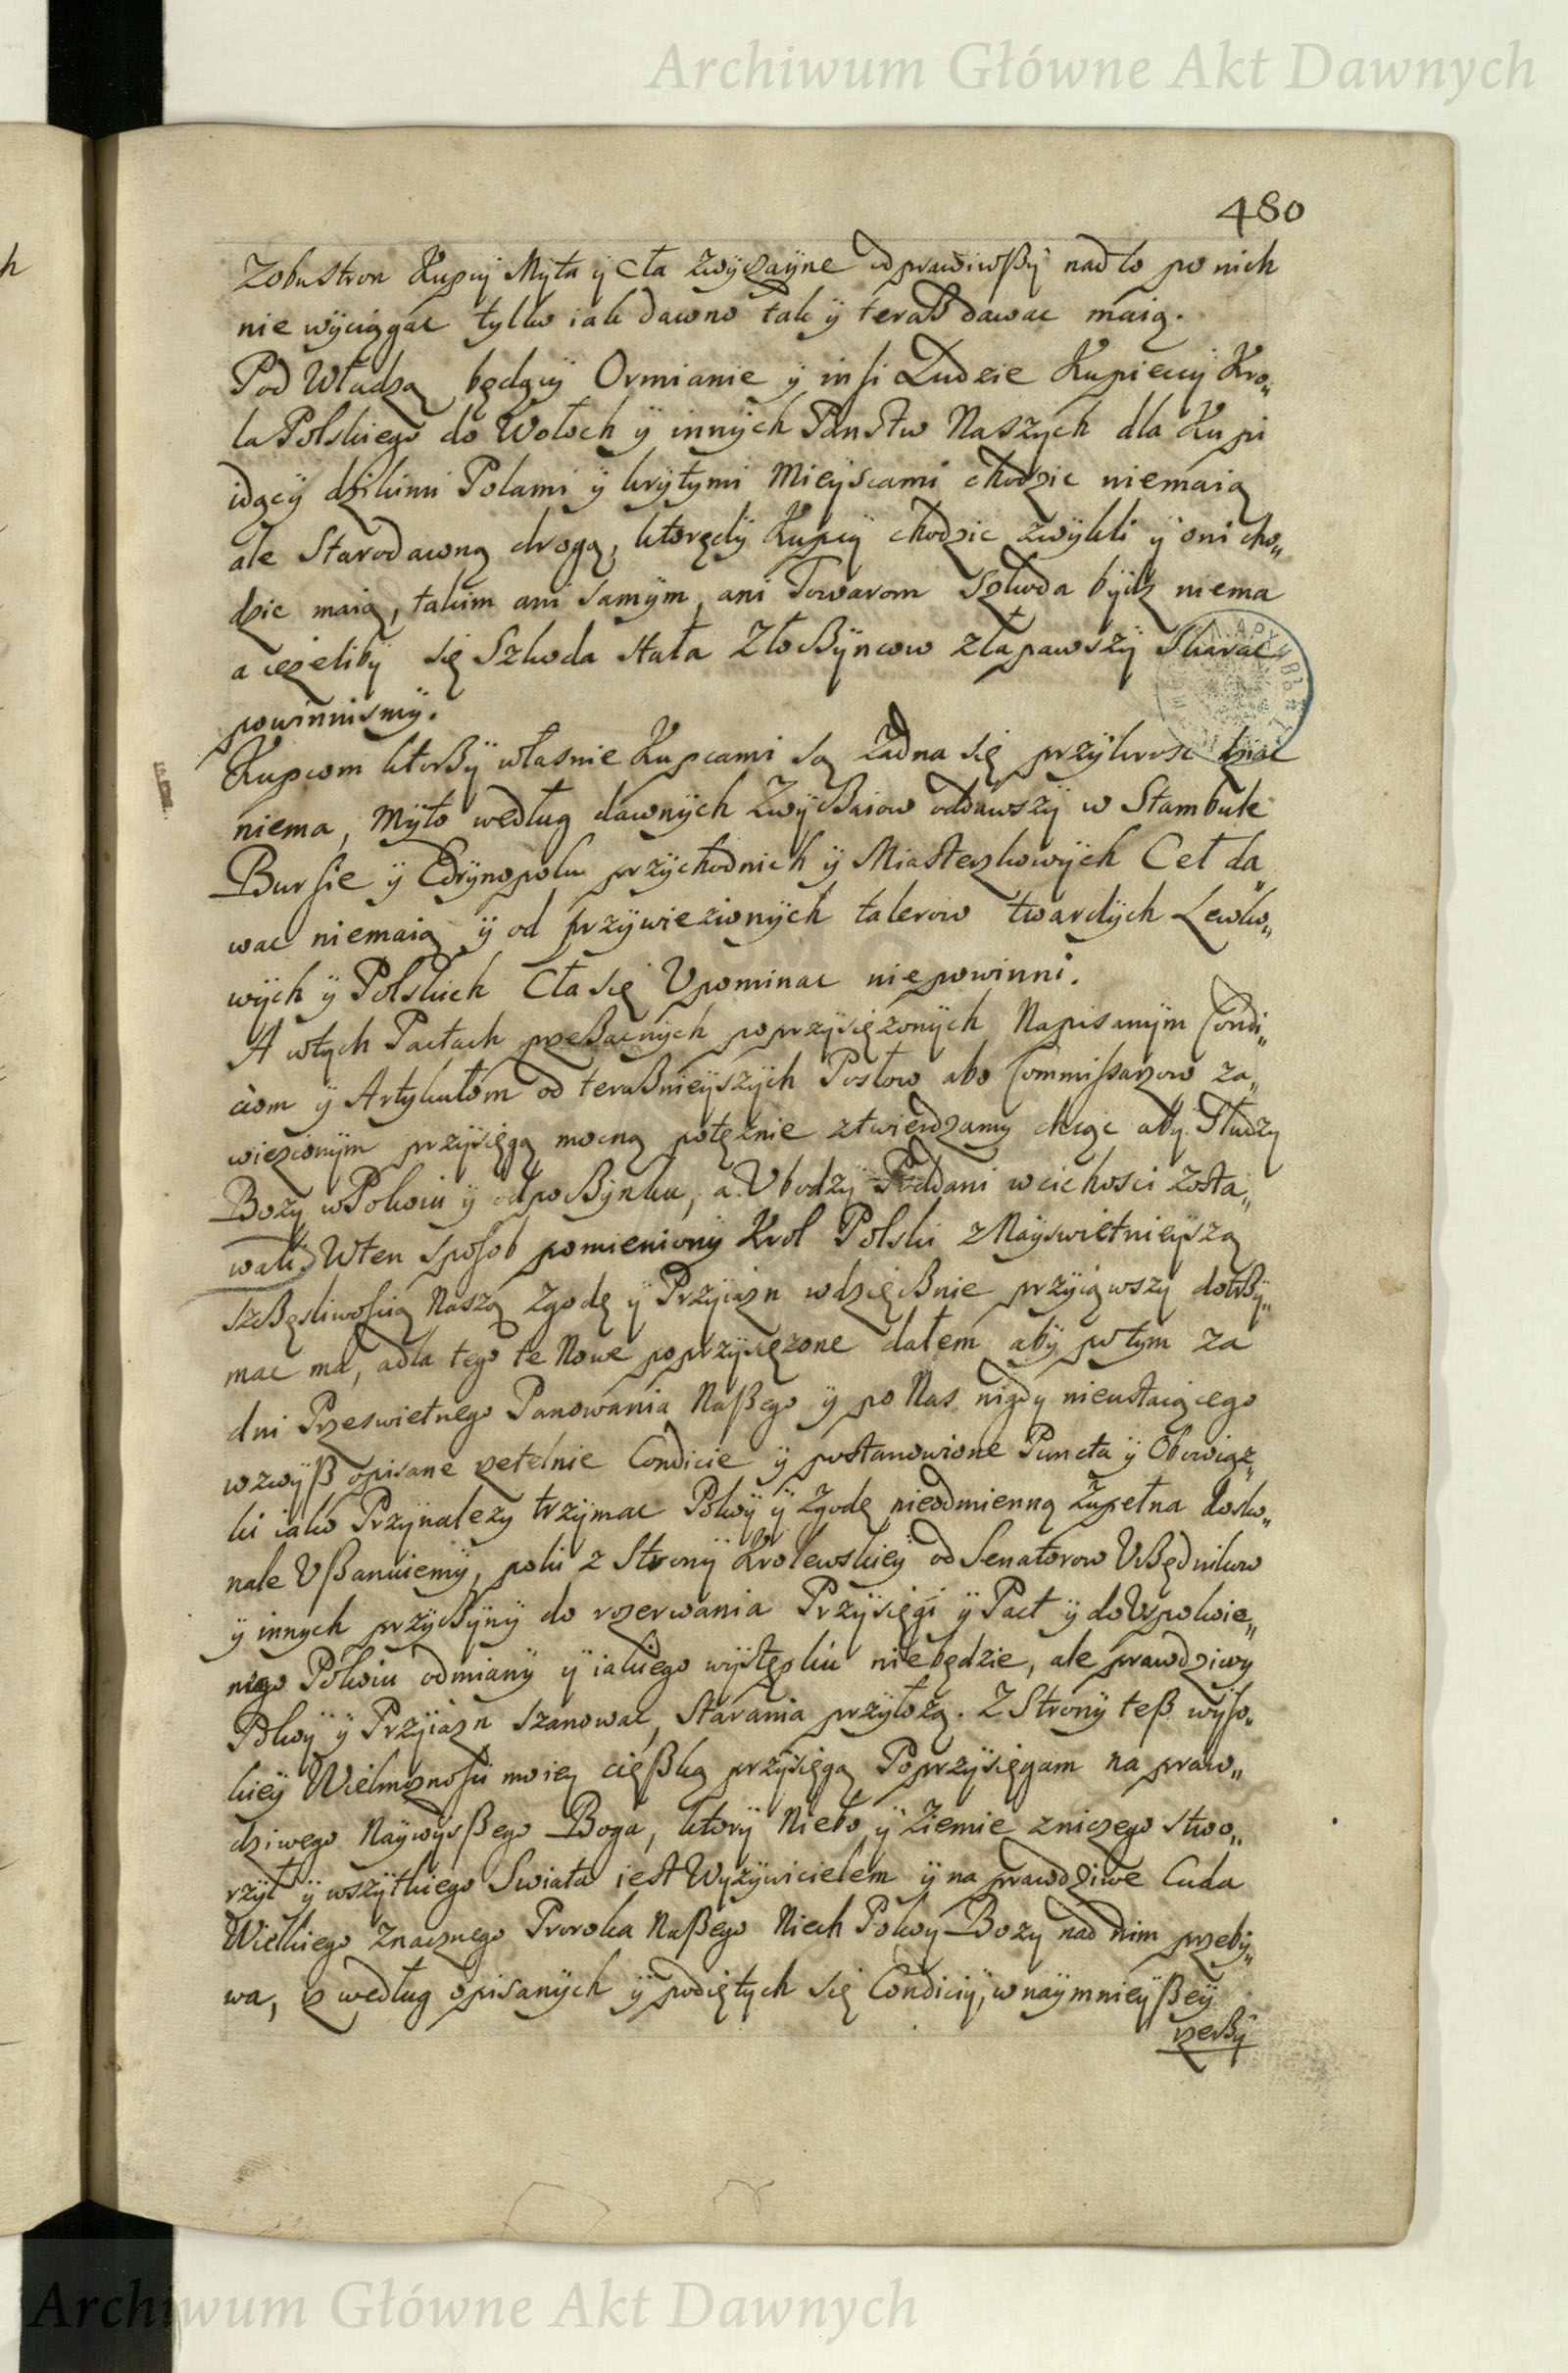 Archiwum Główne Akt Dawnych
480
Zobustron Kupcy Myta ÿ Cła Zwÿczaÿne odprawiwßÿ nadto po nich
nie wÿciągac tylko iak dawno tak ÿ teraß dawac maią.
Pod Władzą będącÿ Ormianie ÿ insi Ludzie Kupieccÿ Kro„
la Polskiego do Wołoch ÿ innÿch Panstw Naszÿch dla Kupi
idącÿ dzikimi Polami ÿ krÿtÿmi Mieÿscami chodzic niemaią
ale Starodawną drogą, ktorędÿ Kupcÿ chodzic zwÿkli ÿ oni cho„
dzic maią, takim ani samÿm, ani Towarom Szkoda bÿdz niema
a ieżelibÿ się Szkoda stała Złoczÿncow złapawszÿ Skarac
powinnismÿ.
Kupcom ktorzÿ własnie Kupcami są żadna się przÿkrosc dziac
niema, Mÿto według dawnÿch Zwÿczaiow oddawszÿ w Stambule
Bursie ÿ Edrÿnopolu przÿchodnich ÿ Miasteczkowÿch Ceł da„
wac niemaią ÿ od przÿwiezionÿch talerow twardÿch Lewko„
wÿch ÿ Polskich Cła się Upominac niepowinni.
A wtÿch Pactach przezacnÿch poprzÿsiężonÿch Napisanÿm Condi„
ciom ÿ Artÿkułom od teraßnieÿszÿch Posłow abo Commissarzow za„
wiezionÿm przÿsięgą mocną potężnie ztwierdzamy chcąc aby Słudzy
Bozy w Pokoiu ÿ odpoczÿnku, a Ubodzÿ Poddani w cichosci zosta„
wali. Wten sposob pomienionÿ Krol Polski z Naÿswietnieÿszą
szczęsliwoscią Naszą Zgodę ÿ Przÿiazn wdzięcznie przÿiąwszy dotrzÿ„
mac ma, adla tego te Nowe poprzÿsiężone dałem abÿ potym za
dni Przeswietnego Panowania Naßego ÿ po Nas nigdy nieustaiącego
wzwÿß opisane rzetelnie Condicie ÿ postanowione Puncta ÿ Obowiąz„
ki iako Przÿnależy trzÿmac Pokoÿ ÿ Zgodę nieodmienną Zupełna dosko„
nale Ußanuiemÿ, poki z Stronÿ Krolewskieÿ od Senatorow Urzędnikow
ÿ innych przÿczÿnÿ do rozerwania Przÿsięgi ÿ Pact ÿ do Uspokoio„
nego Pokoiu odmianÿ ÿ iakiego wÿstępku niebędzie, ale prawdziwy
Pokoÿ ÿ Przÿiazn szanowac, starania przÿłożą. Z Stronÿ teß wÿso„
kieÿ Wielmoznosci moieÿ cięßką przÿsięgą Poprzÿsięgam na praw„
dziwego Naÿwÿsßego Boga, ktorÿ Niebo ÿ Ziemie zniczego stwo„
rzÿł ÿ wszÿtkiego Swiata iest Wyzÿwicielem ÿ na prawdziwe Cuda
Wielkiego Znacznego Proroka Naßego Niech Pokoy Bozy nad nim przebÿ„
wa, iz według opisanÿch ÿ podiętÿch się Condiciÿ, w naÿmnieÿßeÿ
rzeczÿ
Archiwum Główne Akt Dawnych